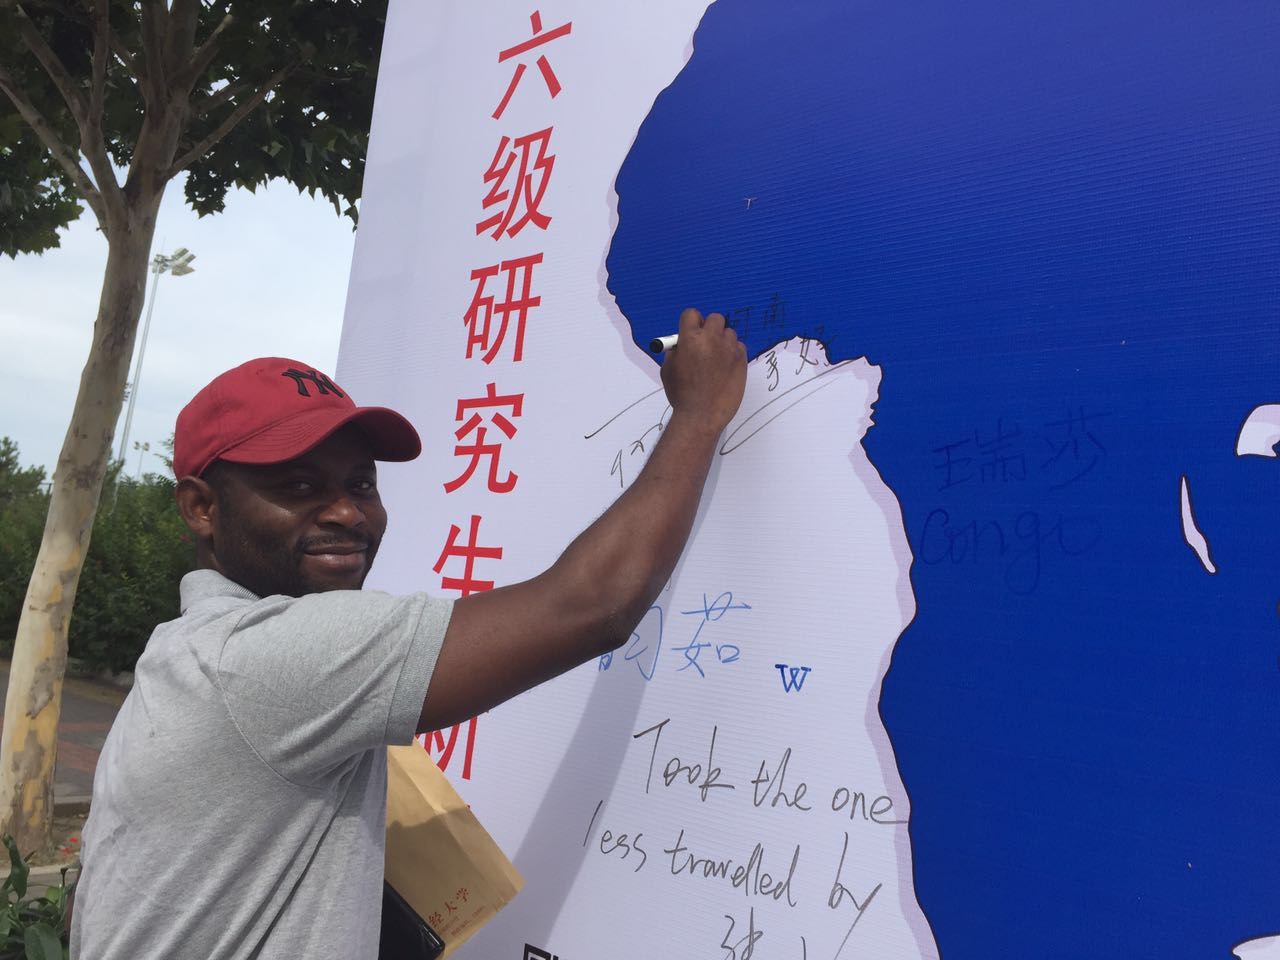 六级研究生新
NY
河南
李好
瑞莎
Congo
茹
W
Took the one
less travelled by
经大学